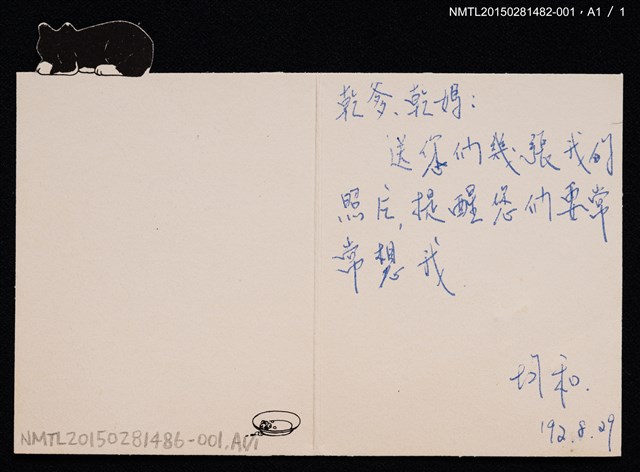 NMTL20150281482-001，A1 / 1
乾爹、乾媽：
送您们幾張我的
照片，提醒您们要常
常想我
均和.
'92.8.29
NMTL20150281486-001.A1/1